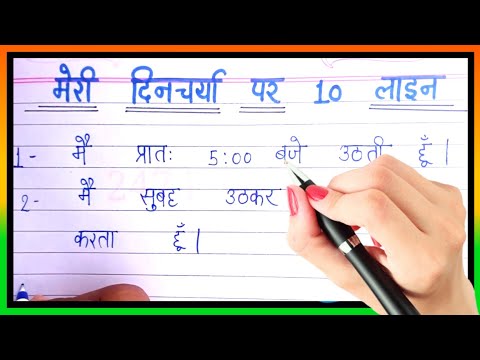 मेरी दिनचर्या पर 10 लाइन
1- मै प्रातः 5:00 बजे उठती हूँ |
2- मै सुबह उठकर
करता हूँ |